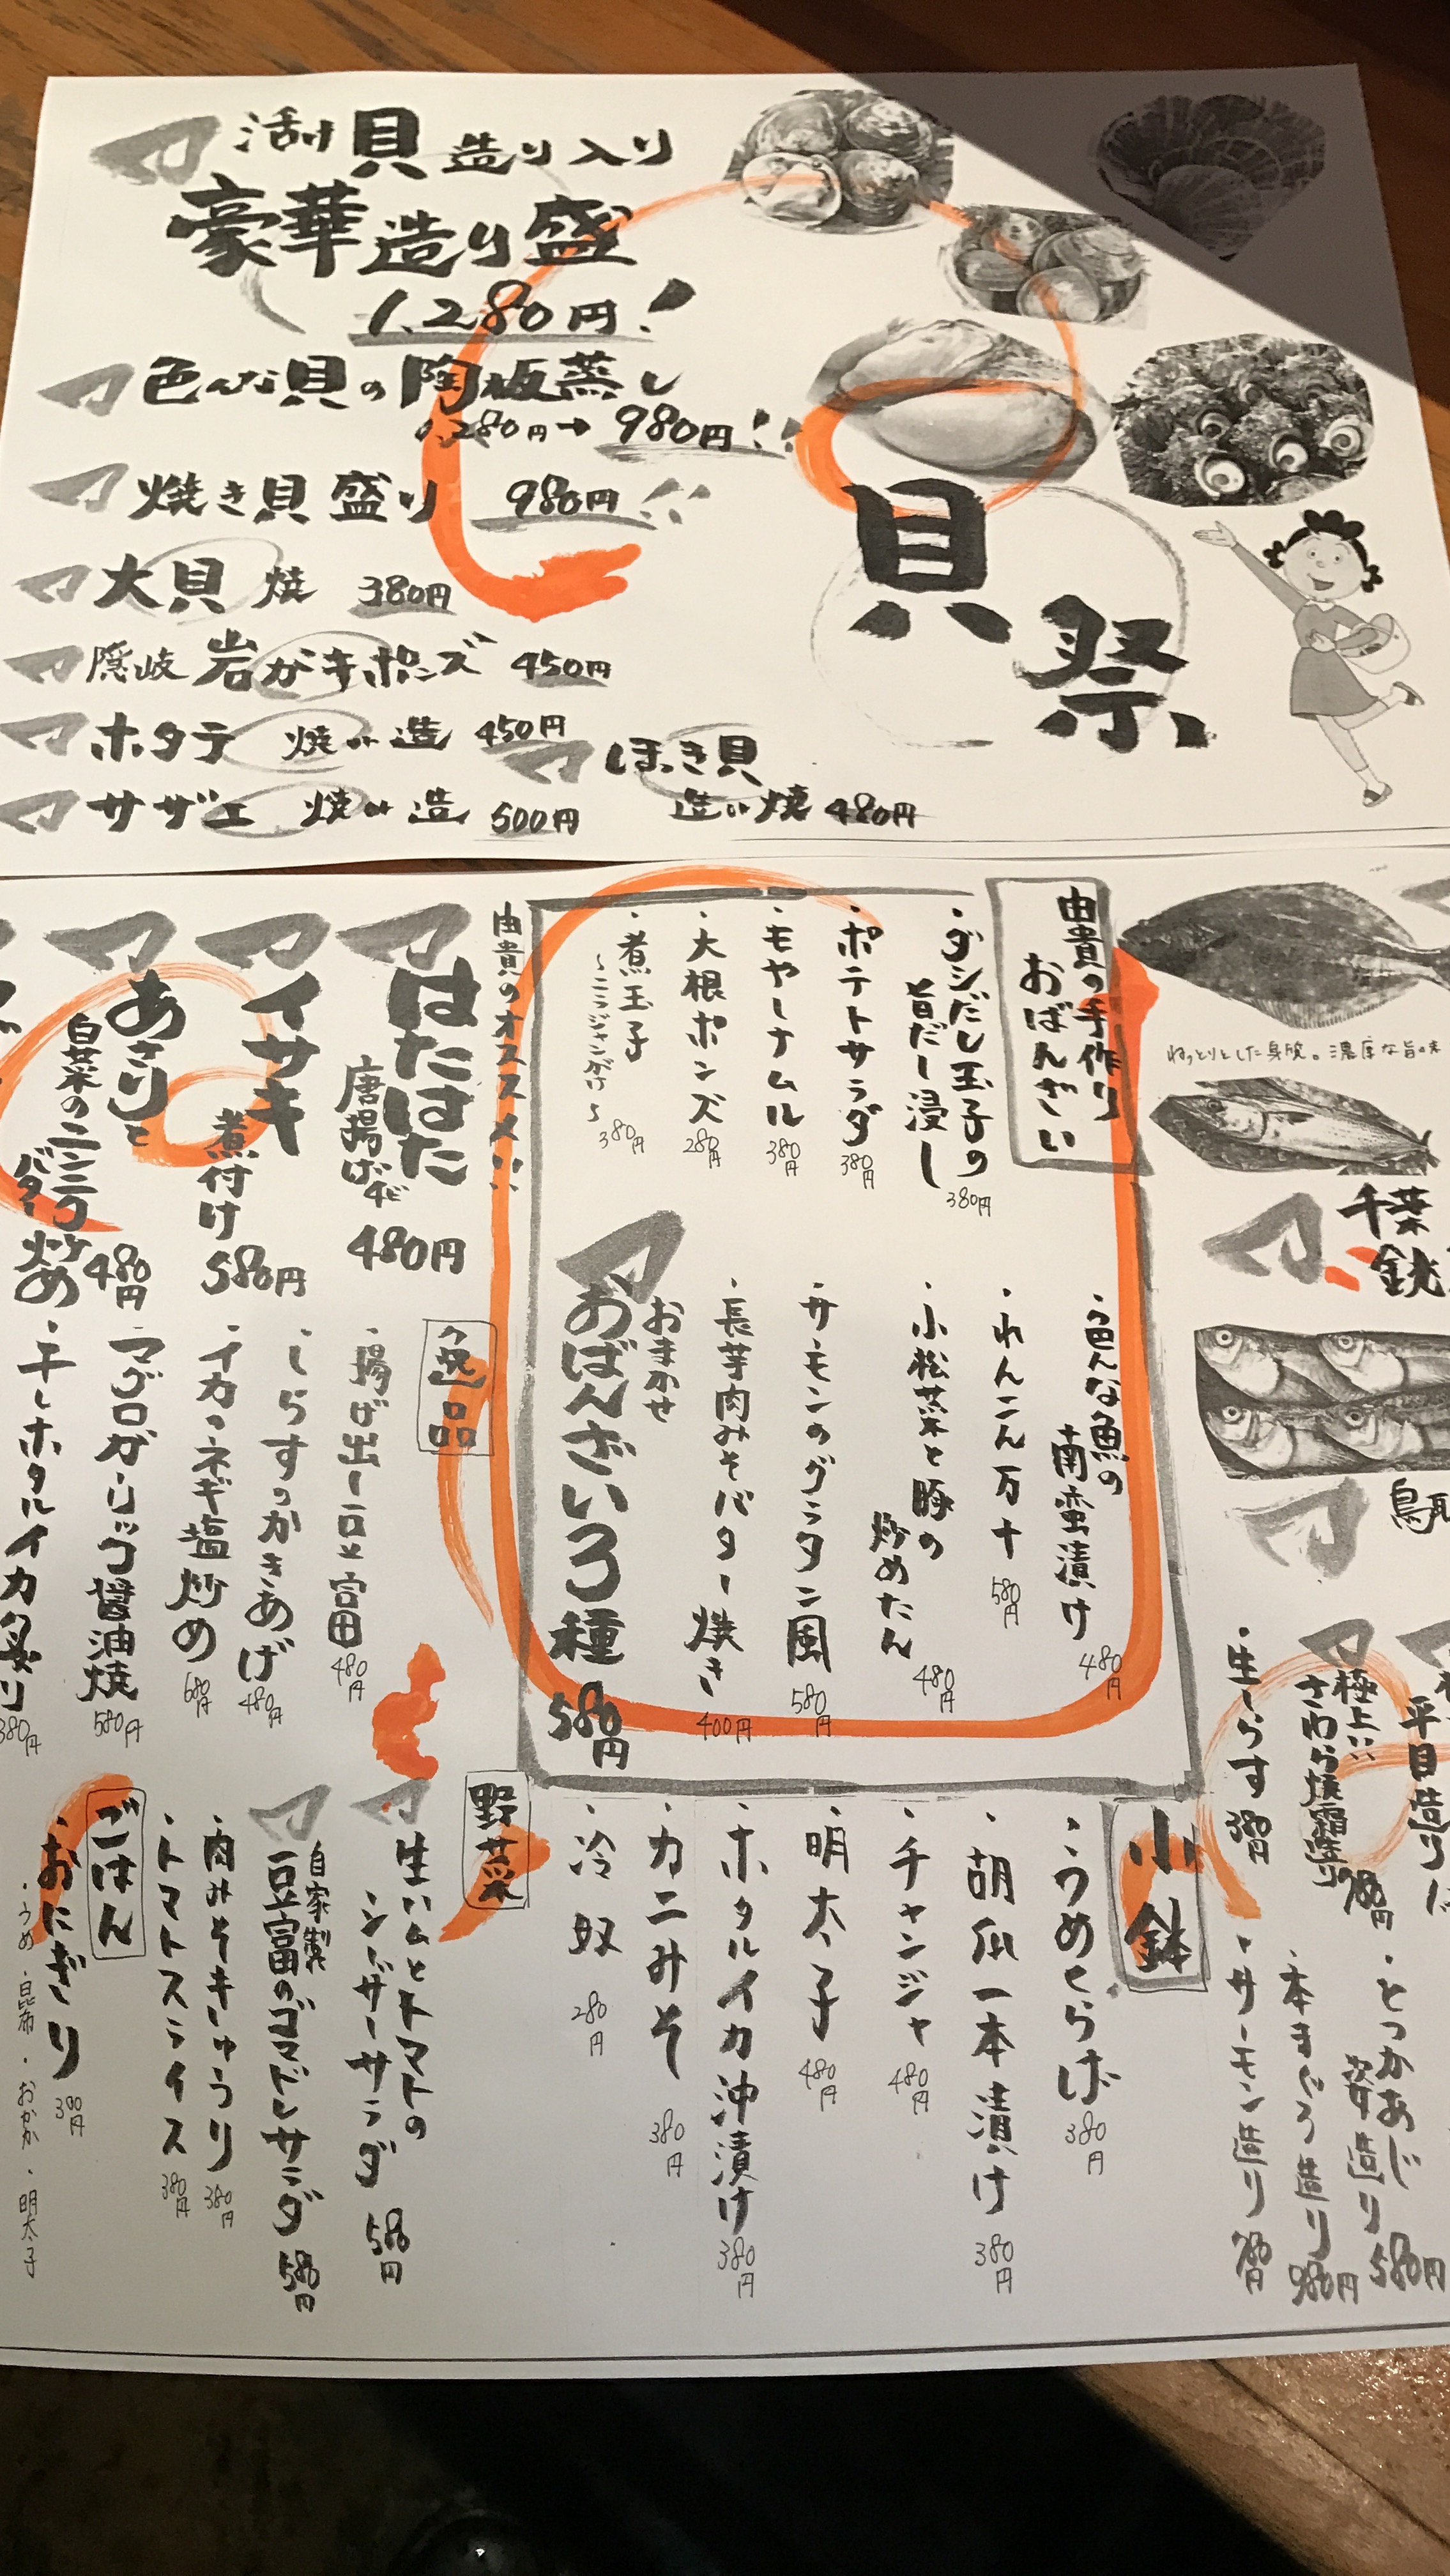 活け貝造り入り
豪華造り盛
1,280円!
色んな貝の陶板蒸し
1,280円→980円!!
焼き貝盛り 980円!!
大貝焼 380円
隠岐岩がキポンズ 450円
ホタテ 焼or造 450円
サザエ 焼or造 500円
ほっき貝
造or焼 480円
貝祭
ねっとりとした身質。濃厚な旨味
千葉
銚
鳥取
平目造り
極上!!
さわら焼霜造り
780円
生しらす 380円
とつかあじ
姿造り 580円
本まぐろ造り 980円
サーモン造り 780円
由貴の手作り
おばんざい
・ダシだし玉子の
旨だし浸し 380円
・ポテトサラダ 380円
・モヤシナムル 380円
・大根ポンズ 280円
・煮玉子
380円
・色んな魚の
南蛮漬け 480円
・れんこん万十 580円
・小松菜と豚の
炒めたん 480円
・サーモンのグラタン風 580円
・長芋肉みそバター焼き 400円
おまかせ
おばんざい3種 580円
由貴のオススメ!!
はたはた
唐揚げ 480円
イサキ
煮付け 580円
あさりと
白菜のニンニク
バター炒め 480円
逸品
・揚げ出し豆富 480円
・しらすのかきあげ 480円
・イカ・ネギ塩炒め 680円
・マグロガーリック醤油焼 580円
・干しホタルイカ炙り 380円
小鉢
・うめくらげ 380円
・胡瓜一本漬け 380円
・チャンジャ 480円
・明太子 480円
・ホタルイカ沖漬け 380円
・カニみそ 380円
・冷奴 280円
野菜
生ハムとトマトの
シーザーサラダ 580円
自家製
豆富のゴマドレサラダ 580円
・肉みそきゅうり 380円
・トマトスライス 380円
ごはん
・おにぎり 300円
・うめ・昆布・おかか・明太子